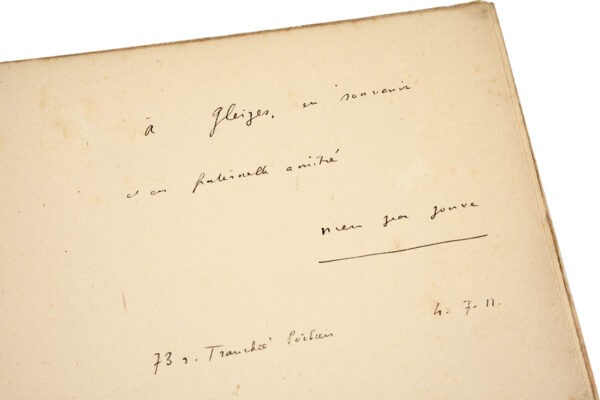 à Gleizes, en souvenir
et en fraternelle amitié
jouve
4. 7. 11.
73 r. Tranchée Poitiers